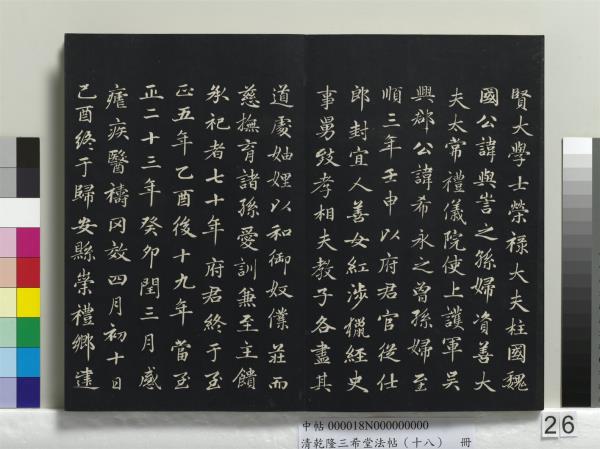 賢大學士榮祿大夫柱國魏
國公諱與訔之孫婦資善大
夫太常禮儀院使上護軍吳
興郡公諱希永之曾孫婦至
順三年壬申以府君官從仕
郎封宜人善女紅涉獵經史
事舅姑孝相夫教子各盡其
道處妯娌以和御奴僕莊而
慈撫育諸孫愛訓兼至主饋
承祀者七十年府君終于至
正五年乙酉後十九年當至
正二十三年癸卯閏三月感
瘧疾醫禱罔效四月初十日
己酉終于歸安縣崇禮鄉
中帖 000018N000000000
清乾隆三希堂法帖（十八） 冊
26